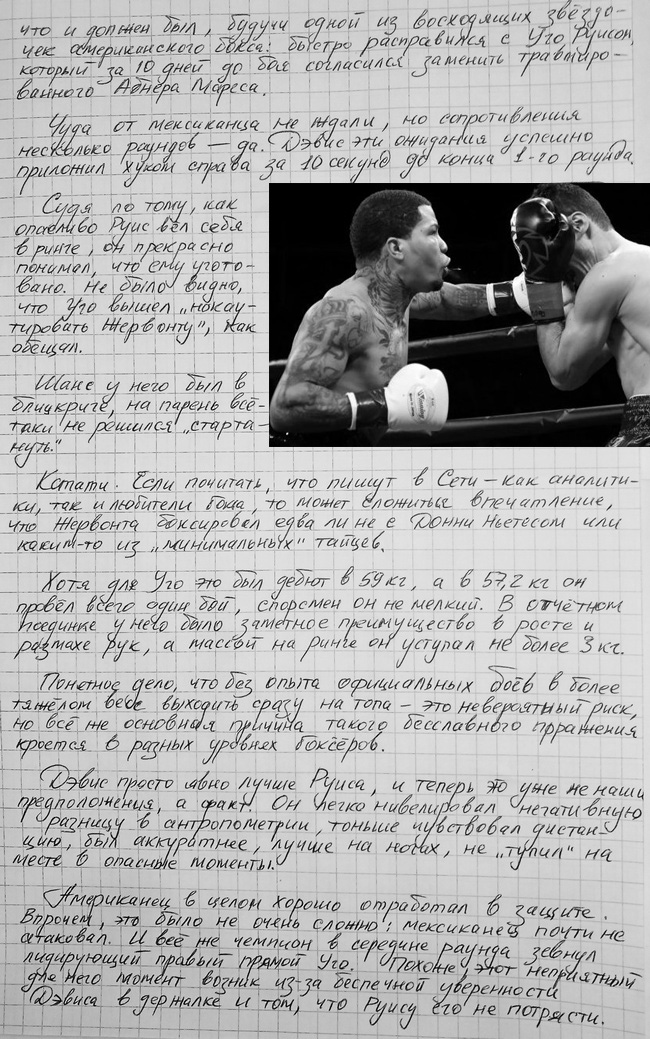 что и должен был, будучи одной из восходящих звёздо-
чек американского бокса: быстро расправился с Уго Руисом,
который за 10 дней до боя согласился заменить травмиро-
ванного Абнера Мареса.
Чуда от мексиканца не ждали, но сопротивления
несколько раундов — да. Дэвис эти ожидания успешно
приложил хуком справа за 10 секунд до конца 1-го раунда.
Судя по тому, как
опасливо Руис вёл себя
в ринге, он прекрасно
понимал, что ему угото-
вано. Не было видно,
что Уго вышел „нокау-
тировать Жервонту", как
обещал.
Шанс у него был в
блицкриге, на парень всё-
таки не решился „старта-
нуть."
Кстати. Если почитать, что пишут в Сети — как аналити-
ки, так и любители бокса, то может сложиться впечатление,
что Жервонта боксировал едва ли не с Донни Ньетесом или
каким-то из „минимальных" тайцев.
Хотя для Уго это был дебют в 59 кг, а в 57,2 кг он
провёл всего один бой, спорсмен он не мелкий. В отчётном
поединке у него было заметное преимущество в росте и
размахе рук, а массой на ринге он уступал не более 3 кг.
Понятное дело, что без опыта официальных боёв в более
тяжёлом весе выходить сразу на топа — это невероятный риск,
но всё же основная причина такого бесславного прражения
кроется в разных уровнях боксёров.
Дэвис просто явно лучше Руиса, и теперь это уже не наши
предположения, а факт. Он легко нивелировал негативную
разницу в антропометрии, тоньше чувствовал дистан-
цию, был аккуратнее, лучше на ногах, не „тупил" на
месте в опасные моменты.
Американец в целом хорошо отработал в защите.
Впрочем, это было не очень сложно: мексиканец почти не
атаковал. И всё же чемпион в середине раунда зевнул
лидирующий правый прямой Уго. Похоже, этот неприятный
для него момент возник из-за беспечной уверенности
Дэвиса в держалке и том, что Руису его не потрясти.